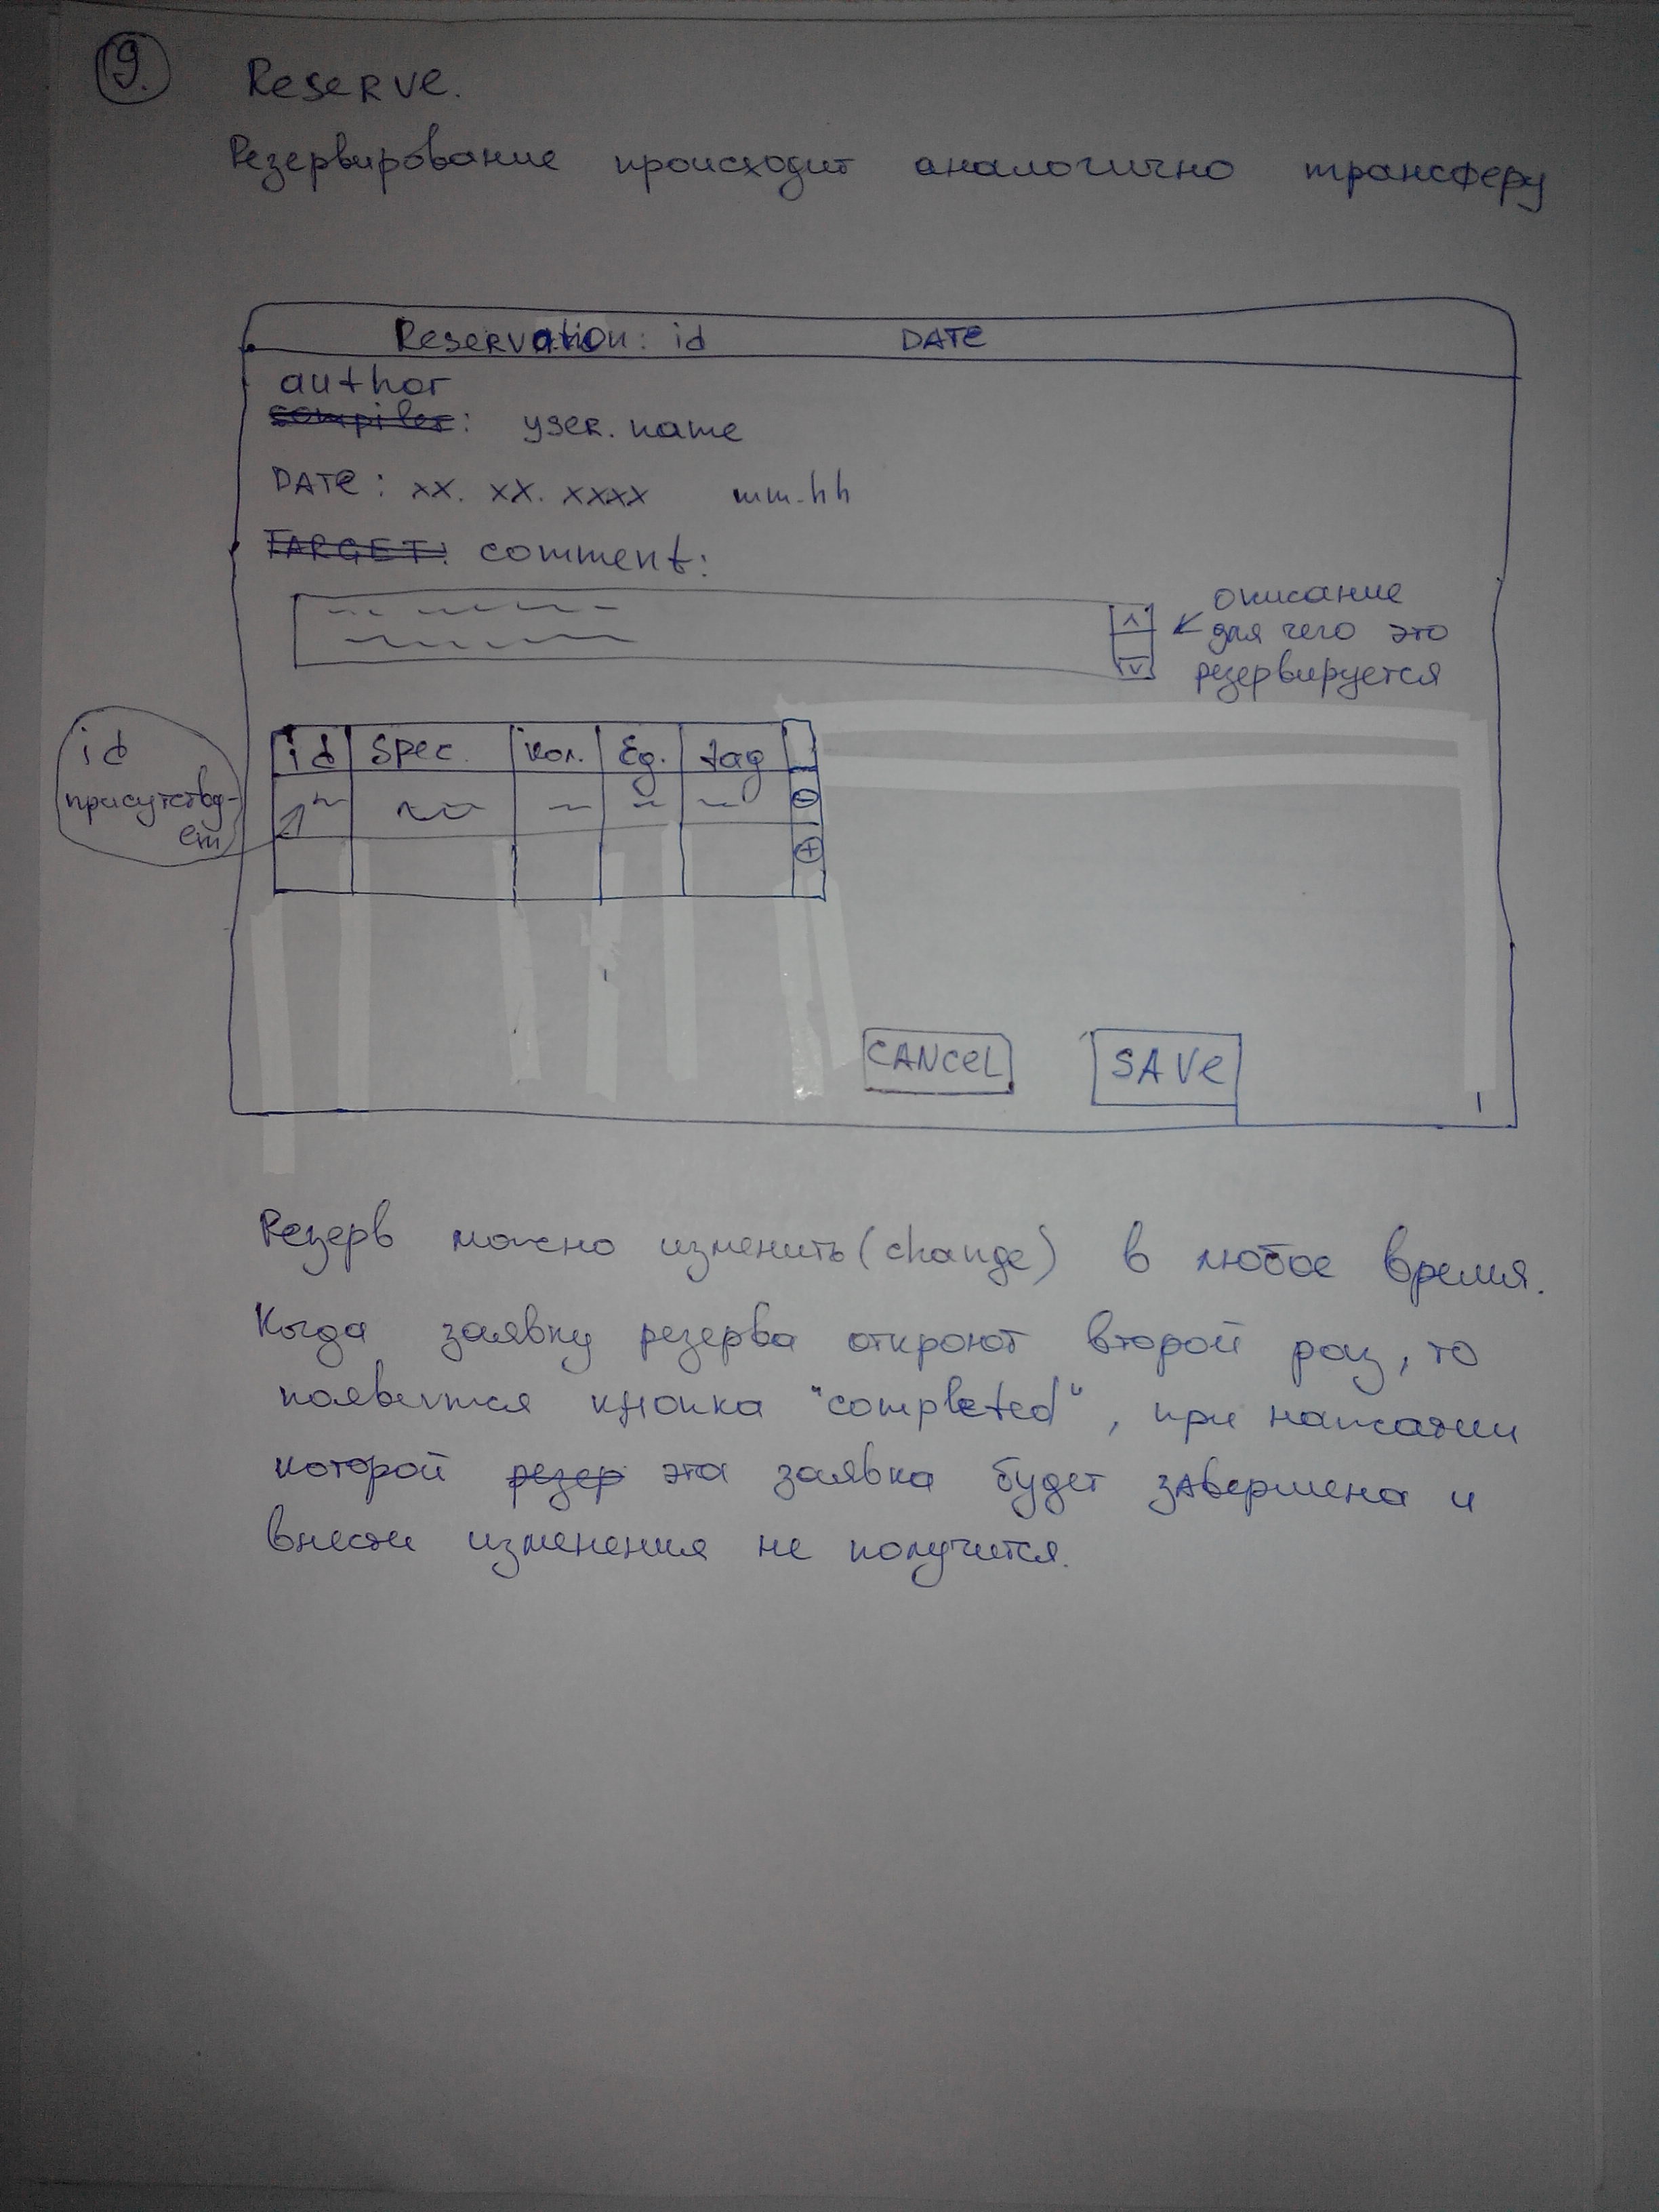 9.
Reserve.
Резервирование происходит аналогично трансферу
Reservation: id DATE
author
compiler: user.name
DATE: xx. xx. xxxx mm.hh
TARGET: comment:
описание
для чего это
резервируется
id
присутству-
ет
id Spec. Кол. Ед. tag
-
+
CANCEL SAVE
Резерв можно изменить (change) в любое время.
Когда заявку резерва откроют второй раз, то
появится кнопка "completed", при нажатии
которой резер эта заявка будет завершена и
внести изменения не получится.